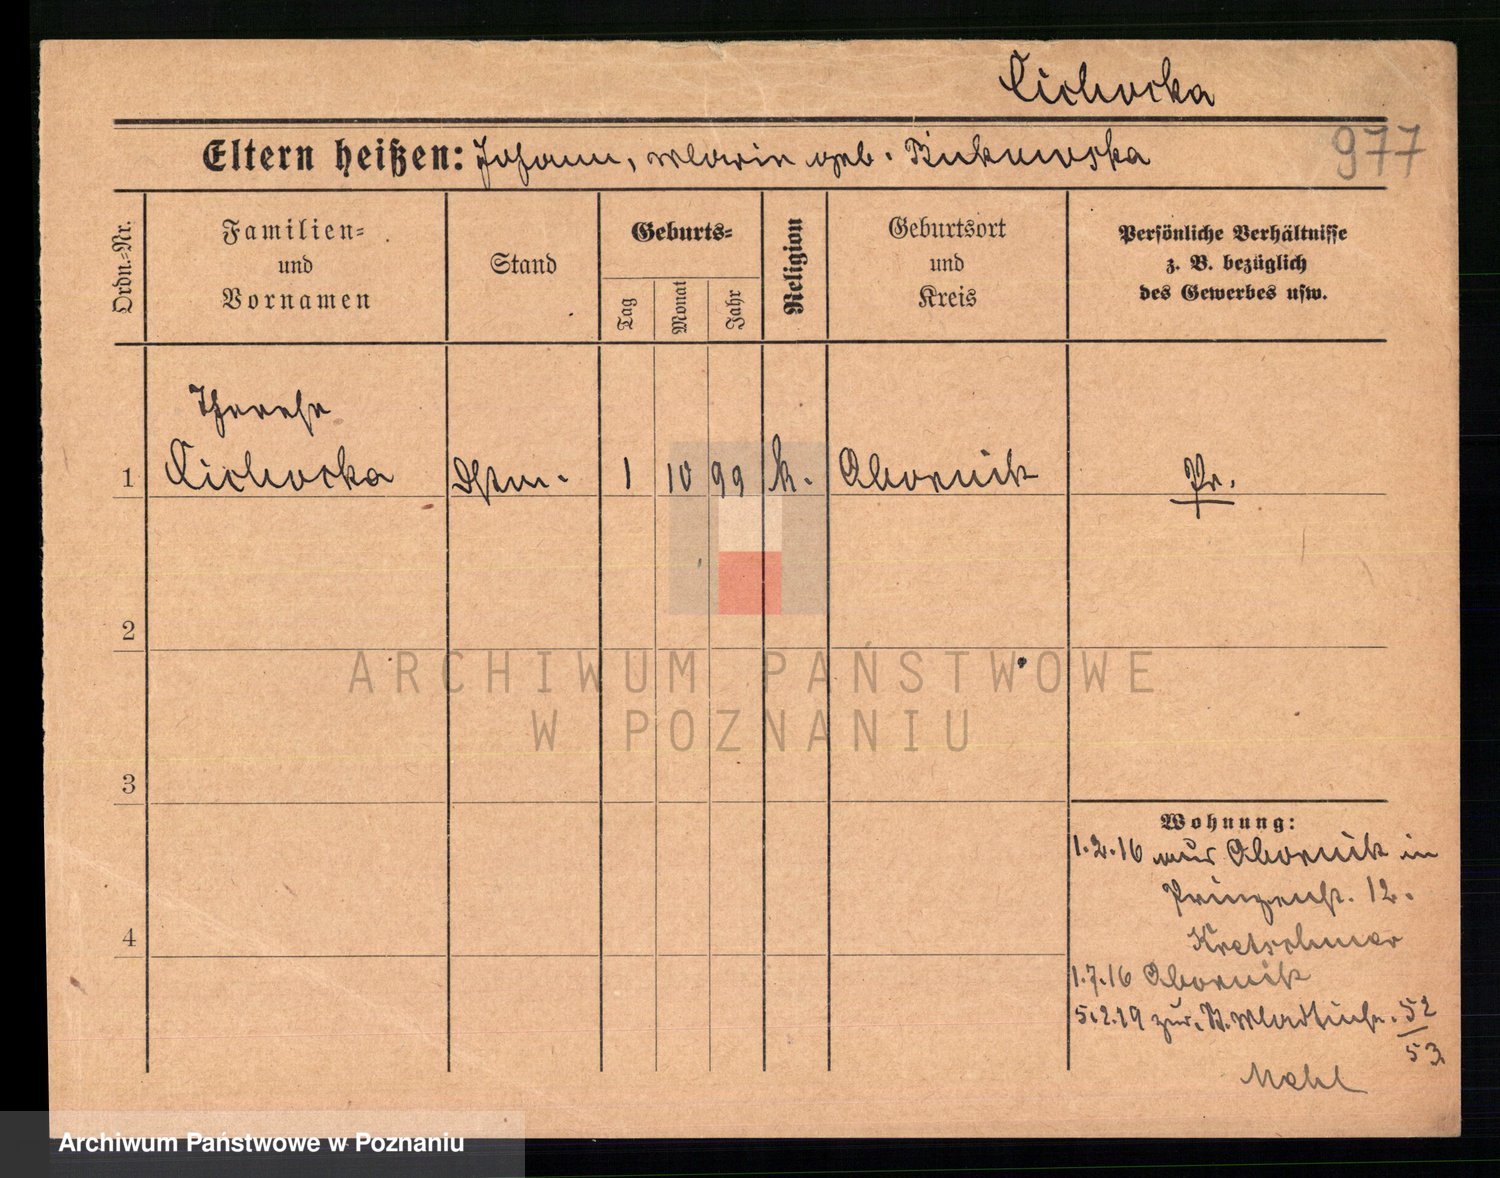 Cichocka
Eltern heißen: Johann, Marie geb. Bukowska
977
Ordn.-Nr.
Familien-
und
Vornamen
Stand
Geburts-
Tag
Monat
Jahr
Religion
Geburtsort
und
Kreis
Persönliche Verhältnisse
z. B. bezüglich
des Gewerbes usw.
Therese
1 Cichocka Dstm. 1 10 99 k. Obornik Pr.
2
3
4
Wohnung:
1.2.16 aus Obornik in
Prinzenst. 12.
Kretschmer
1.7.16 Obornik
5.2.19 zur. 52
53
Mehl
ARCHIWUM PAŃSTWOWE
W POZNANIU
Archiwum Państwowe w Poznaniu